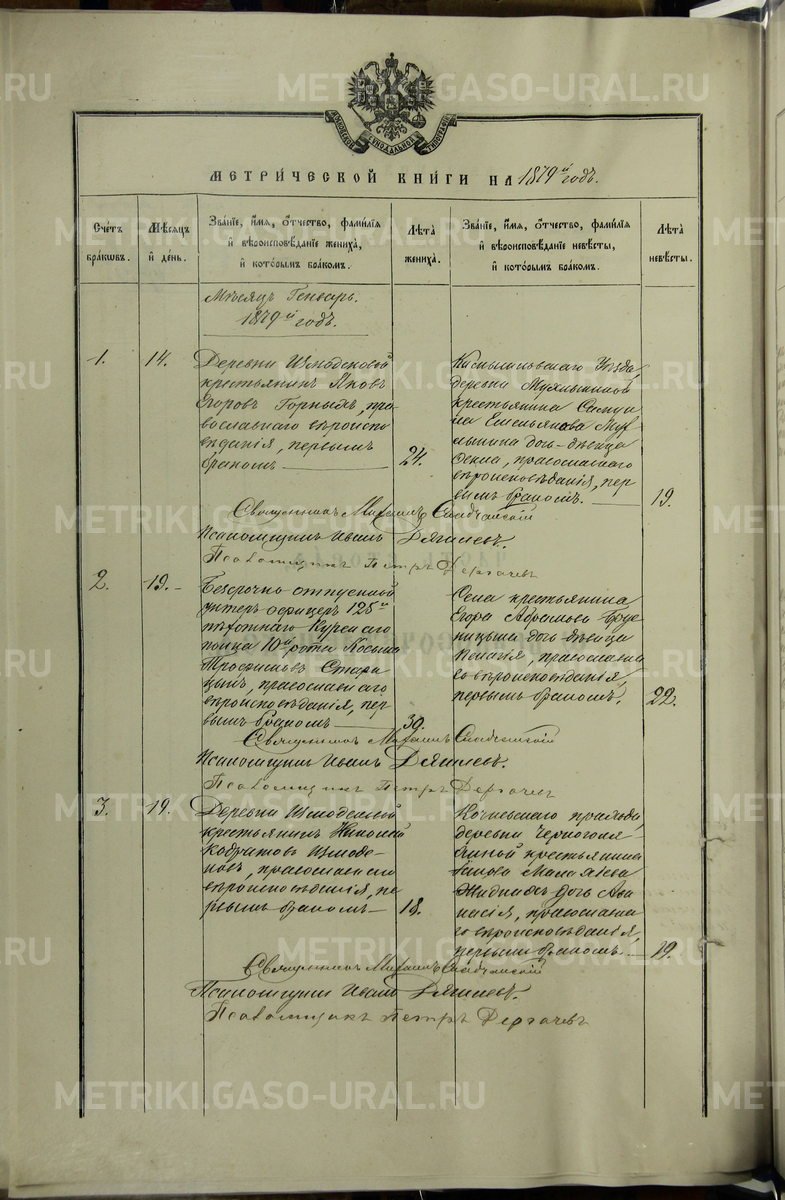 METRIKI.GASO-URAL.RU
МОСКОВСКОЙ СѴНОДАЛЬНОЙ ТИПОГРАФІИ
МЕТРИ́ЧЕСКОЙ КНИ́ГИ НА 1879й годъ.
Сче́тъ бра́кѡвъ.
Мѣ́сѧцъ и҆ де́нь.
Зва́нїе, и҆́мѧ, ѻ҆́тчество, фами́лїѧ и҆ вѣроисповѣ́данїе жениха̀, и҆ кото́рымъ бра́комъ.
Лѣ́та жениха̀.
Зва́нїе, и҆́мѧ, ѻ҆́тчество, фами́лїѧ и҆ вѣроисповѣ́данїе невѣ́сты, и҆ кото́рымъ бра́комъ.
Лѣ́та невѣ́сты.
Мѣсяцъ Генварь.
1879й годъ.
1.
14.
Деревни Измоденовой
крестьянинъ Яковъ
Егоровъ Горныхъ, пра-
вославнаго вѣроиспо
вѣданія, первымъ
бракомъ
24.
Камышловскаго Уѣзда,
деревни
крестьянина
Емельянова
дочь-дѣвица
Фекла, православнаго
вѣроисповѣданія, пер
вымъ бракомъ.
19.
Священникъ Михаилъ
Псаломщикъ Иванъ Дягилевъ.
Псаломщикъ Петръ Дергачевъ
2.
19.
Безсрочно-отпускной
унтеръ-офицеръ 125й
пѣхотнаго Курскаго
полка 10й роты Косьма
Трофимовъ Стари
цынъ, православнаго
вѣроисповѣданія, пер
вымъ бракомъ
30.
Села крестьянина
Егора Абрамова Брус
ницына дочь дѣвица
Пелагія, православна
го вѣроисповѣданія,
первымъ бракомъ.
22.
Священникъ Михаилъ
Псаломщикъ Иванъ Дягилевъ.
Псаломщикъ Петръ Дергачевъ
3.
19.
Деревни Измоденовой
крестьянинъ Николай
Кодратовъ Измоде-
новъ, православнаго
вѣроисповѣданія, пе
рвымъ бракомъ
18.
Кочневскаго прихода,
деревни Черноголя-
крестьянина
дочь Афа
насія, православна
го вѣроисповѣданія,
первымъ бракомъ.
19.
Священникъ Михаилъ
Псаломщикъ Иванъ Дягилевъ.
Псаломщикъ Петръ Дергачевъ